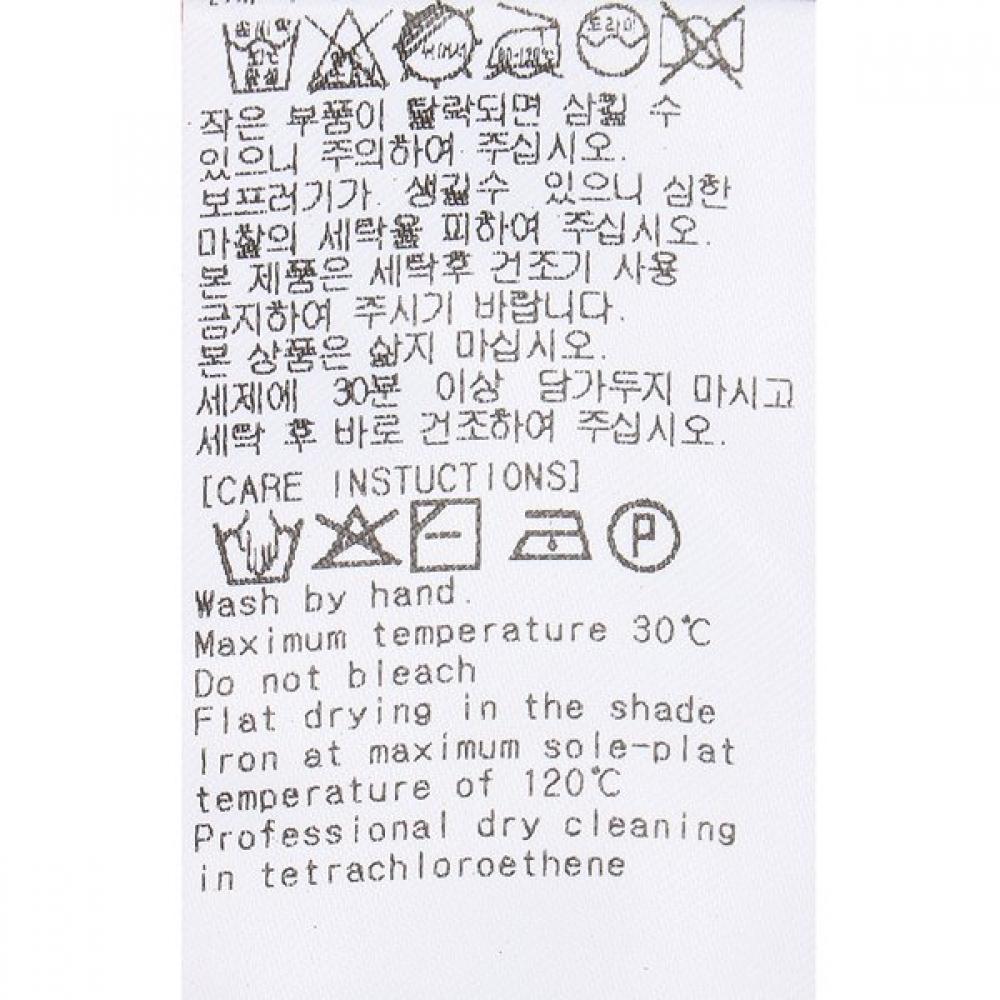 드라이
80~120℃
작은 부품이 탈락되면 삼킬 수
있으니 주의하여 주십시오.
보프러기가 생길수 있으니 심한
마찰의 세탁을 피하여 주십시오.
본 제품은 세탁후 건조기 사용
금지하여 주시기 바랍니다.
본 상품은 삶지 마십시오.
세제에 30분 이상 담가두지 마시고
세탁 후 바로 건조하여 주십시오.
[CARE INSTUCTIONS]
P
Wash by hand.
Maximum temperature 30℃
Do not bleach
Flat drying in the shade
Iron at maximum sole-plat
temperature of 120℃
Professional dry cleaning
in tetrachloroethene